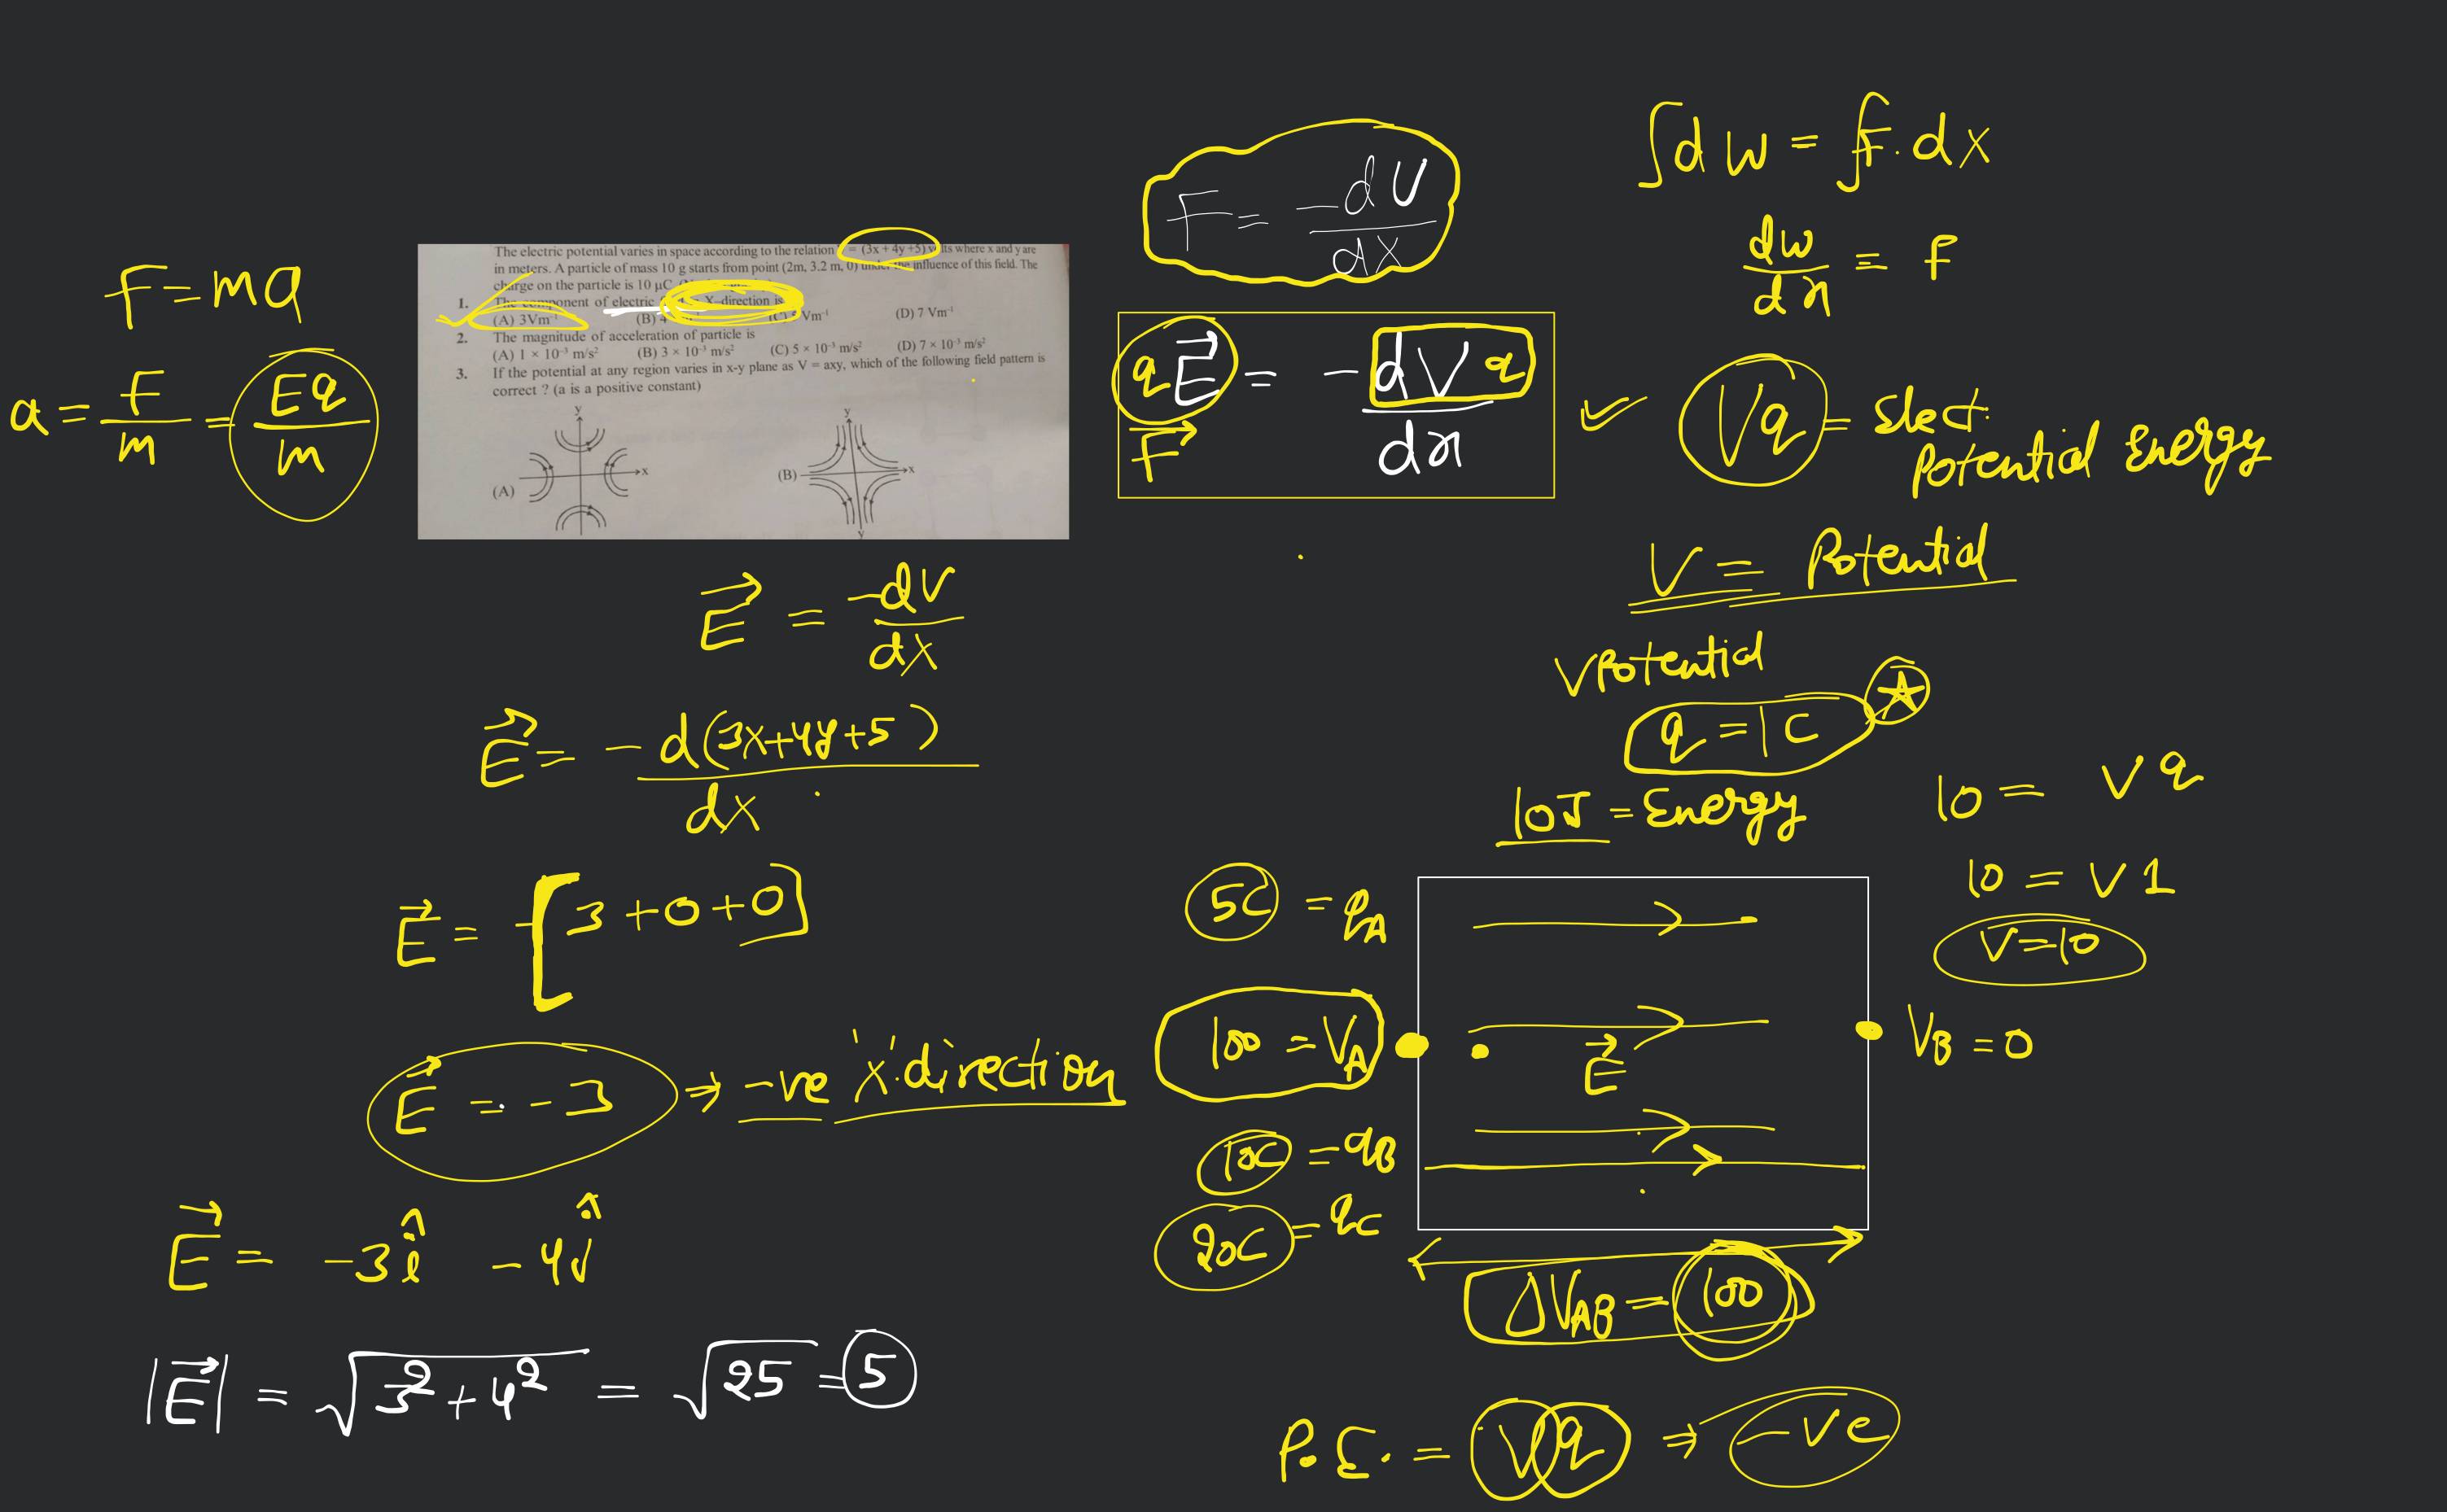 F = ma
a = F/m = Eq/m
The electric potential varies in space according to the relation = (3x + 4y +5) where x and y are
in meters. A particle of mass 10 g starts from point (2m, 3.2 m, 0) under the influence of this field. The
charge on the particle is 10 μC
1. The component of electric X-direction is
(A) 3Vm⁻¹ (B) 4 (C) 5 Vm⁻¹ (D) 7 Vm⁻¹
2. The magnitude of acceleration of particle is
(A) 1 × 10⁻³ m/s² (B) 3 × 10⁻³ m/s² (C) 5 × 10⁻³ m/s² (D) 7 × 10⁻³ m/s²
3. If the potential at any region varies in x-y plane as V = axy, which of the following field pattern is
correct ? (a is a positive constant)
y
x
(A)
y
x
(B)
y
E⃗ = -dV/dx
E⃗ = -d(3x+4y+5)/dx
E⃗ = -[3+0+0]
E⃗ = -3 ⇒ -ve 'x' direction
E⃗ = -3î -4ĵ
|E⃗| = √3²+4² = √25 = 5
F = -dU/dx
qE⃗ = -dVq/dx
F⃗
∫dW = ∫F.dx
dw/dx = F
Vq = Elect.
Potential Energy
V = Potential
V Potential
q = 1C
10J = Energy
10 = Vq
10 = V1
V=10
5C = qA
100 = VA
E⃗
VB = 0
10C = qB
20C = qC
ΔVAB = 100
P.E. = Vq ⇒ -ve